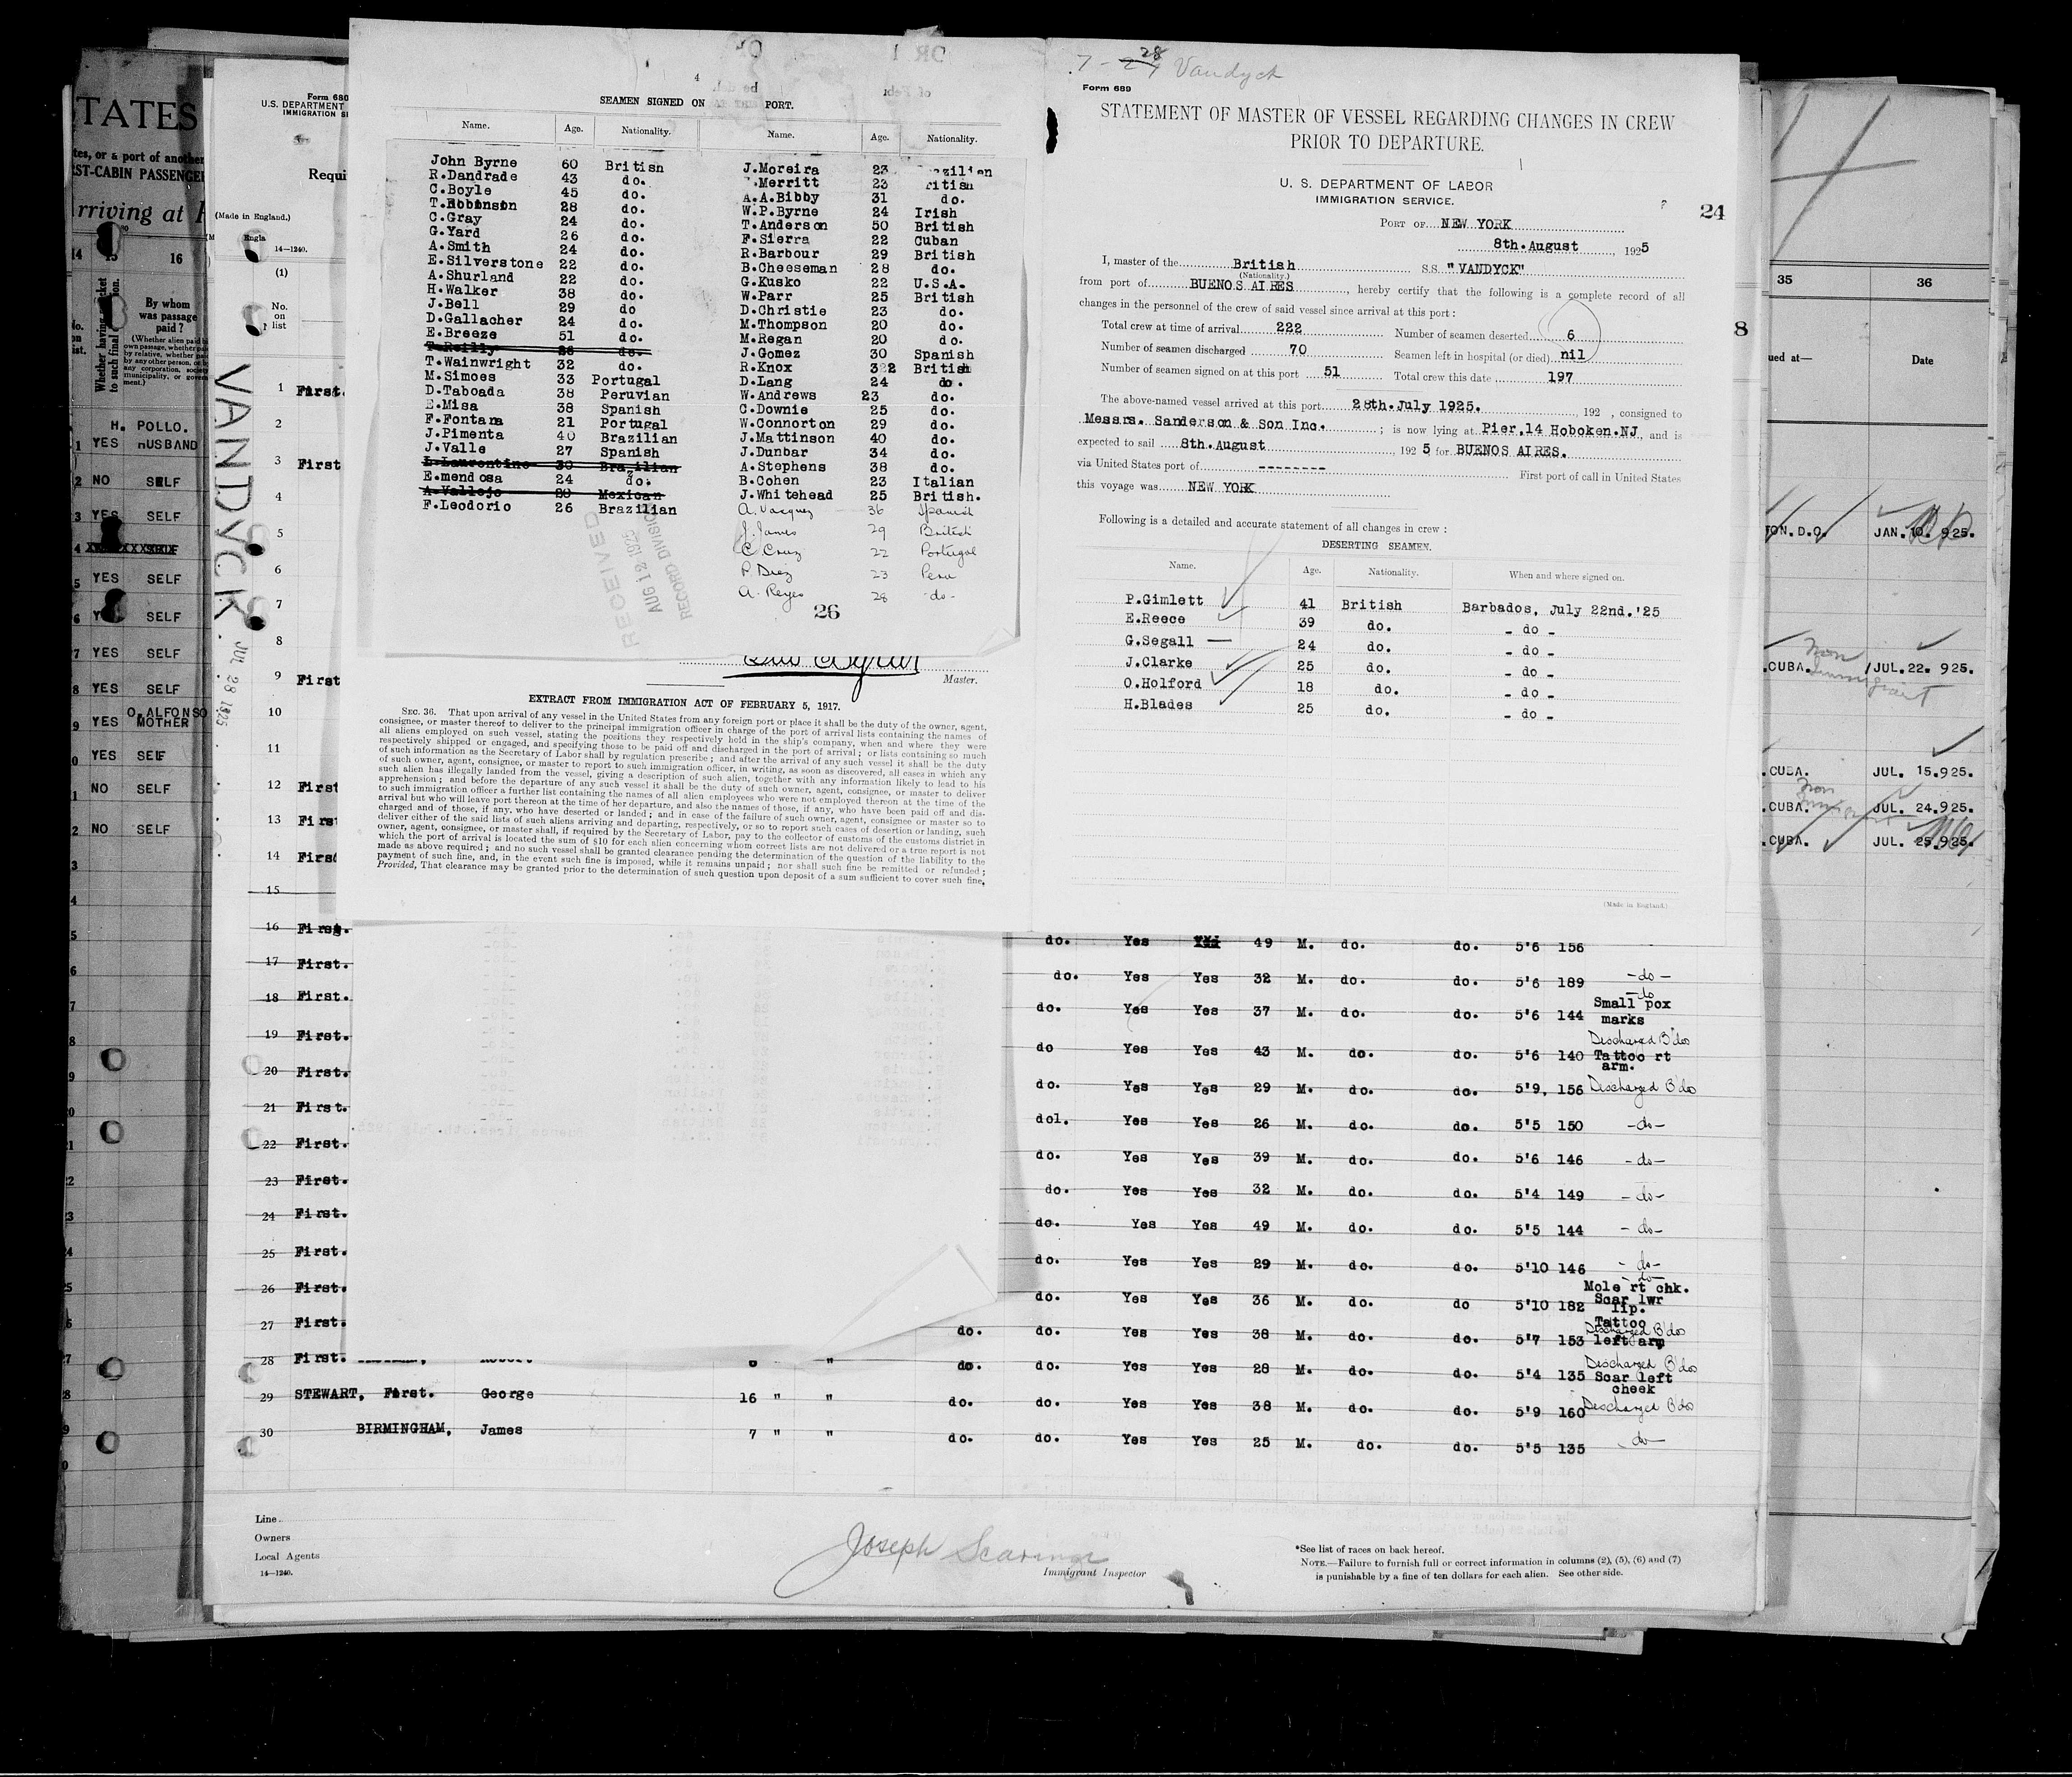 7-28 Vandyck
Form 689
STATEMENT OF MASTER OF VESSEL REGARDING CHANGES IN CREW
PRIOR TO DEPARTURE.
U. S. DEPARTMENT OF LABOR
IMMIGRATION SERVICE.
24
PORT OF NEW YORK
8th.August , 1925
I, master of the British S.S. "VANDYCK"
(Nationality.)
from port of BUENOS AIRES , hereby certify that the following is a complete record of all
changes in the personnel of the crew of said vessel since arrival at this port :
Total crew at time of arrival 222 Number of seamen deserted 6
Number of seamen discharged 70 Seamen left in hospital (or died) nil
Number of seamen signed on at this port 51 Total crew this date 197
The above-named vessel arrived at this port 28th.July 1925. , 192 , consigned to
Messrs. Sanderson & Son Inc. ; is now lying at Pier.14 Hoboken.NJ and is
expected to sail 8th.August , 192 5 for BUENOS AIRES.
via United States port of -------- First port of call in United States
this voyage was NEW YORK
Following is a detailed and accurate statement of all changes in crew :
DESERTING SEAMEN.
Name. Age. Nationality. When and where signed on.
P.Gimlett 41 British Barbados, July 22nd.'25
E.Reece 39 do. - do -
G.Segall 24 do. - do -
J.Clarke 25 do. - do -
O.Holford 18 do. - do -
H.Blades 25 do. - do -
(Made in England.)
4
SEAMEN SIGNED ON PORT.
Name. Age. Nationality. Name. Age. Nationality.
John Byrne 60 British J.Moreira 23 Brazilian
R.Dandrade 43 do. Merritt 23 British
C.Boyle 45 do. A.A.Bibby 31 do.
T.Robinson 28 do. W.P.Byrne 24 Irish
C.Gray 24 do. T.Anderson 50 British
G.Yard 26 do. F.Sierra 22 Cuban
A.Smith 24 do. R.Barbour 29 British
E.Silverstone 22 do. B.Cheeseman 28 do.
A.Shurland 22 do. G.Kusko 22 U.S.A.
H.Walker 38 do. W.Parr 25 British
J.Bell 29 do D.Christie 23 do.
D.Gallacher 24 do. M.Thompson 20 do.
E.Breeze 51 do. M.Regan 20 do.
T.Reilly 26 do. J.Gomez 30 Spanish
T.Wainwright 32 do. R.Knox 32 British
M.Simoes 33 Portugal D.Lang 24 do.
D.Taboada 38 Peruvian W.Andrews 23 do.
E.Misa 38 Spanish C.Downie 25 do.
F.Fontana 21 Portugal W.Connorton 29 do.
J.Pimenta 40 Brazilian J.Mattinson 40 do.
J.Valle 27 Spanish J.Dunbar 34 do.
L.Laurentino 30 Brazilian A.Stephens 38 do.
E.mendosa 24 do. B.Cohen 23 Italian
A.Vallejo 20 Mexican J.Whitehead 25 British.
F.Leodorio 26 Brazilian A. Vasquez 36 Spanish
J. James 29 British
C. Cruz 22 Portugal
P. Diez 23 Peru
A. Reyes 28 -do-
26
RECEIVED
AUG 12 1925
RECORD DIVISION
Master.
EXTRACT FROM IMMIGRATION ACT OF FEBRUARY 5, 1917.
SEC. 36. That upon arrival of any vessel in the United States from any foreign port or place it shall be the duty of the owner, agent,
consignee, or master thereof to deliver to the principal immigration officer in charge of the port of arrival lists containing the names of
all aliens employed on such vessel, stating the positions they respectively hold in the ship's company, when and where they were
respectively shipped or engaged, and specifying those to be paid off and discharged in the port of arrival ; or lists containing so much
of such information as the Secretary of Labor shall by regulation prescribe ; and after the arrival of any such vessel it shall be the duty
of such owner, agent, consignee, or master to report to such immigration officer, in writing, as soon as discovered, all cases in which any
such alien has illegally landed from the vessel, giving a description of such alien, together with any information likely to lead to his
apprehension ; and before the departure of any such vessel it shall be the duty of such owner, agent, consignee, or master to deliver
to such immigration officer a further list containing the names of all alien employees who were not employed thereon at the time of the
arrival but who will leave port thereon at the time of her departure, and also the names of those, if any, who have been paid off and dis-
charged and of those, if any, who have deserted or landed ; and in case of the failure of such owner, agent, consignee or master so to
deliver either of the said lists of such aliens arriving and departing, respectively, or so to report such cases of desertion or landing, such
owner, agent, consignee, or master shall, if required by the Secretary of Labor, pay to the collector of customs of the customs district in
which the port of arrival is located the sum of $10 for each alien concerning whom correct lists are not delivered or a true report is not
made as above required ; and no such vessel shall be granted clearance pending the determination of the question of the liability to the
payment of such fine, and, in the event such fine is imposed, while it remains unpaid ; nor shall such fine be remitted or refunded ;
Provided, That clearance may be granted prior to the determination of such question upon deposit of a sum sufficient to cover such fine,
Form 680
U.S. DEPARTMENT
IMMIGRATION SE
Requi
(Made in England.)
14—1240.
(1)
No.
on
list
VANDYCK.
JUL 28 1925
1 First.
2
3 First
4
5
6
7
8
9 First
10
11
12 First
13 First
14 First
15
16 First. do. Yes Yes 49 M. do. do. 5'6 156
17 First. do. Yes Yes 32 M. do. do. 5'6 189 -do-
18 First. do. Yes Yes 37 M. do. do. 5'6 144 -do Small pox marks
19 First. do Yes Yes 43 M. do. do. 5'6 140 Discharged B'dos Tattoo rt arm.
20 First. do. Yes Yes 29 M. do. do. 5'9, 156 Discharged B'dos
21 First. dol. Yes Yes 26 M. do. do. 5'5 150 -do-
22 First. do. Yes Yes 39 M. do. do. 5'6 146 -do-
23 First. do. Yes Yes 32 M. do. do. 5'4 149 -do-
24 First. do. Yes Yes 49 M. do. do. 5'5 144 -do-
25 First. do. Yes Yes 29 M. do. do. 5'10 146 -do-
26 First. do. Yes Yes 36 M. do. do 5'10 182 -do- Mole rt chk. Scar lwr lip.
27 First. do. do. Yes Yes 38 M. do. do. 5'7 153 Tattoo Discharged B'dos left arm
28 First. do. do. Yes Yes 28 M. do. do. 5'4 135 Discharged B'dos Scar left cheek
29 STEWART, First. George 16 " " do. do. Yes Yes 38 M. do. do. 5'9 160 Discharged B'dos
30 BIRMINGHAM, James 7 " " do. do. Yes Yes 25 M. do. do. 5'5 135 -do-
Line
Owners
Local Agents
14—1240.
Joseph
Immigrant Inspector
*See list of races on back hereof.
NOTE.—Failure to furnish full or correct information in columns (2), (5), (6) and (7)
is punishable by a fine of ten dollars for each alien. See other side.
TATES
tes, or a port of another
RST-CABIN PASSENGER
rriving at
14 16
Whether having a ticket
to such final
By whom
was passage
paid?
H. POLLO.
1 YES HUSBAND
2 NO SELF
3 YES SELF
4 SELF
5 YES SELF
6 YES SELF
7 YES SELF
8 YES SELF
O. ALFONSO
9 YES MOTHER
0 YES SELF
1 NO SELF
2 NO SELF
8
35 36
ued at— Date
TON. D.O. JAN. 10. 925.
CUBA. JUL. 22. 925.
Non Immigrant
.CUBA. JUL. 15.925.
.CUBA. JUL. 24.925.
.CUBA. JUL. 25.925.